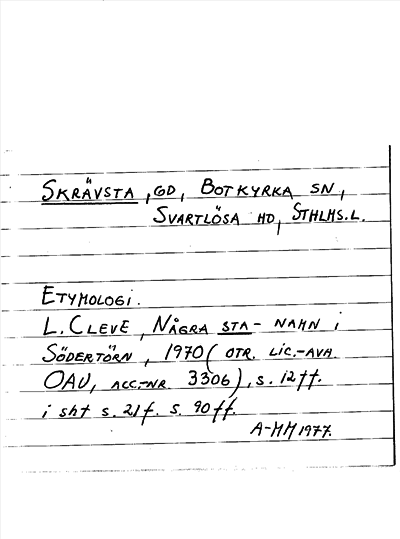 SKRÄVSTA, GD, BOTKYRKA SN,
SVARTLÖSA HD, STHLMS.L.
ETYMOLOGI.
L. CLEVE, NÅGRA STA-NAMN i
SÖDERTÖRN, 1970 (OTR. LIC.-AVH.
OAU, ACC.-NR. 3306), s. 12ff.
i sht s. 21f. s. 90ff.
A-MM 1977.